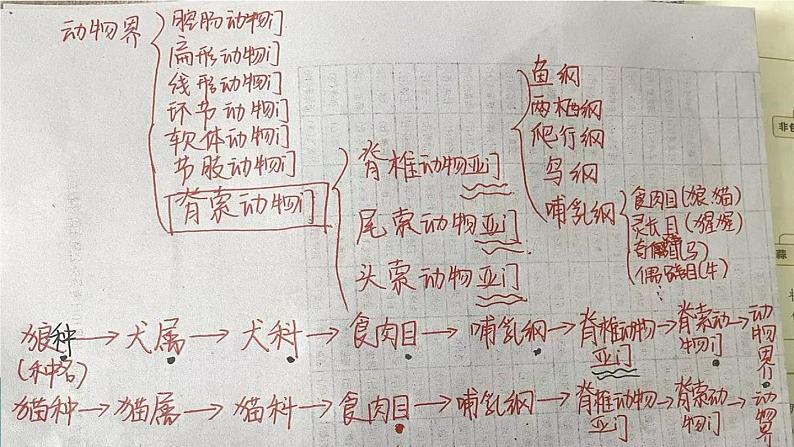 动物界
腔肠动物门
扁形动物门
线形动物门
环节动物门
软体动物门
节肢动物门
脊索动物门
脊椎动物亚门
尾索动物亚门
头索动物亚门
鱼纲
两栖纲
爬行纲
鸟纲
哺乳纲
食肉目(狼 猫)
灵长目(猩猩)
奇蹄目(马)
偶蹄目(牛)
⋮
狼种→犬属→犬科→食肉目→哺乳纲→脊椎动物亚门→脊索动物门→动物界
(种名)
猫种→猫属→猫科→食肉目→哺乳纲→脊椎动物亚门→脊索动物门→动物界